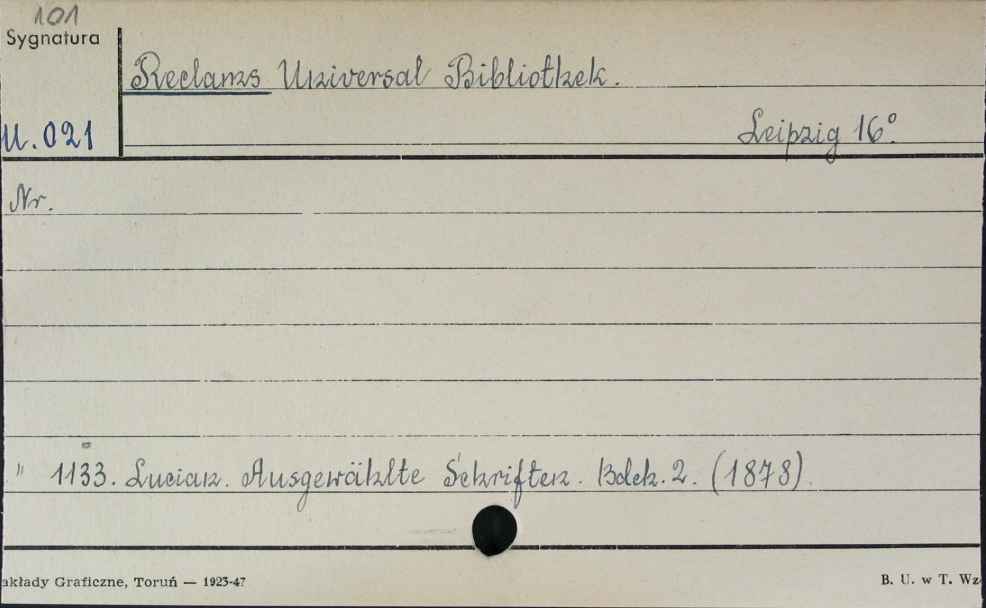 101
Sygnatura
Reclams Universal Bibliothek.
U.021
Leipzig 16°.
Nr.
" 1133. Lucian. Ausgewählte Schriften. Bdch. 2. (1878).
akłady Graficzne, Toruń — 1923-47
B. U. w T. Wz